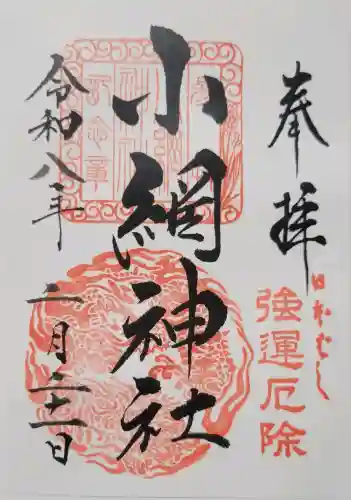 奉拝
日本ばし
強運厄除
小網神社
令和八年
二月二十一日